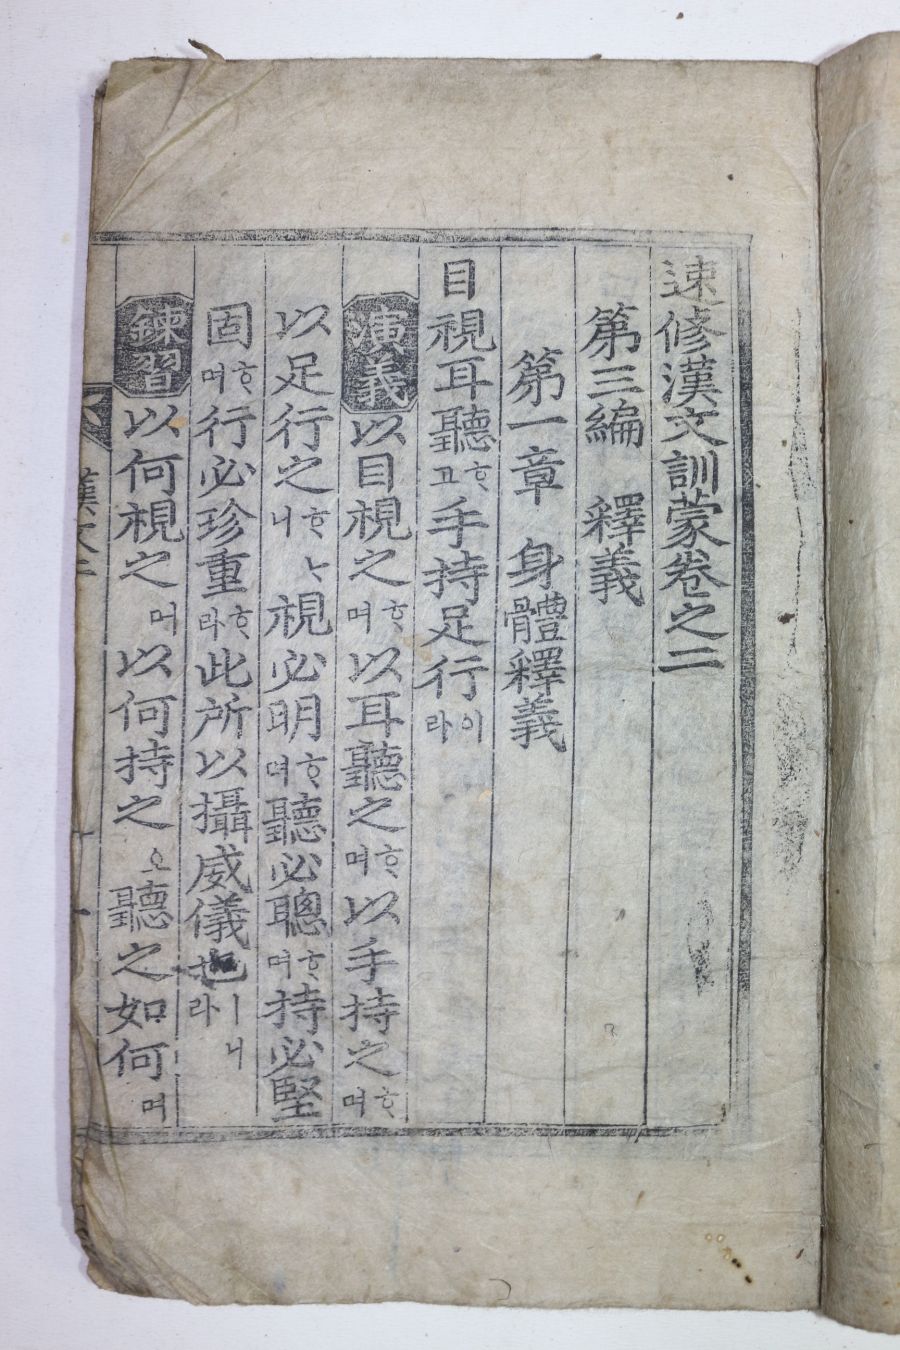 速修漢文訓蒙卷之二
第三編 釋義
第一章 身體釋義
目視耳聽ᄒᆞ고手持足行이라
演義 以目視之ᄒᆞ며以耳聽之ᄒᆞ며以手持之ᄒᆞ며
以足行之ᄒᆞᄂᆞ니視必明ᄒᆞ며聽必聰ᄒᆞ며持必堅
固ᄒᆞ며行必珍重ᄒᆞ라此所以攝威儀也ㅣ니라
鍊習 以何視之며以何持之오聽之如何며
漢文二